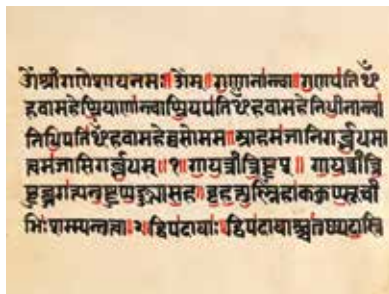 ॐ श्रीगणेशायनमः॥ ॐम्॥ गणानान्त्वा॥ गणपतिᳪ
हवामहेप्प्रियाणान्त्वाप्प्रियपतिᳪहवामहेनिधीनान्त्वा
निधिपतिᳪहवामहेव्वसोमम॥ आहमजानिगर्ब्भधमा
त्वमजासिगर्ब्भधम्॥१॥ गायत्रीत्रिष्टुप्॥ गायत्रीत्रि
ष्टुब्जगत्यनुष्टुप्पङ्क्त्यासह॥ बृहत्युष्णिहाककुप्प्सूची
भिःशम्म्यन्तुत्वा॥२॥ द्विपदायाः द्विपदायाश्चतुष्पदास्त्रि